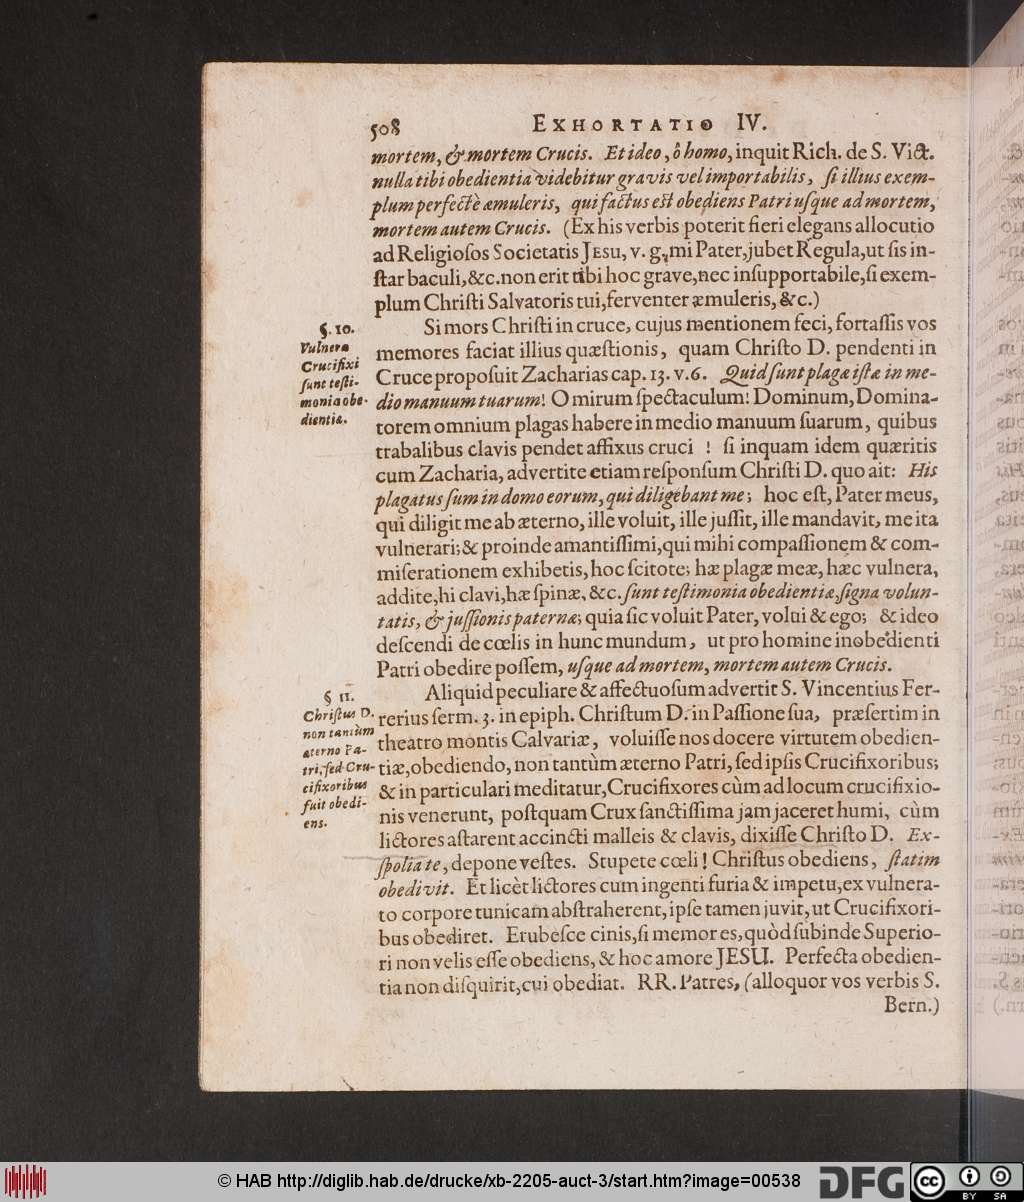 508 EXHORTATIO IV.
mortem, & mortem Crucis. Et ideo, ô homo, inquit Rich. de S. Vict.
nulla tibi obedientia videbitur gravis vel importabilis, ſi illius exem-
plum perfectè æmuleris, qui factus eſt obediens Patri uſque ad mortem,
mortem autem Crucis. (Ex his verbis poterit fieri elegans allocutio
ad Religioſos Societatis JESU, v. g. mi Pater, jubet Regula, ut ſis in-
ſtar baculi, &c. non erit tibi hoc grave, nec inſupportabile, ſi exem-
plum Chriſti Salvatoris tui, ferventer æmuleris, &c.)
§. 10.
Vulnera
Crucifixi
ſunt teſti-
monia obe-
dientiæ.
Si mors Chriſti in cruce, cujus mentionem feci, fortaſſis vos
memores faciat illius quæſtionis, quam Chriſto D. pendenti in
Cruce propoſuit Zacharias cap. 13. v. 6. Quid ſunt plagæ iſtæ in me-
dio manuum tuarum! O mirum ſpectaculum! Dominum, Domina-
torem omnium plagas habere in medio manuum ſuarum, quibus
trabalibus clavis pendet affixus cruci ! ſi inquam idem quæritis
cum Zacharia, advertite etiam reſponſum Chriſti D. quo ait: His
plagatus ſum in domo eorum, qui diligebant me; hoc eſt, Pater meus,
qui diligit me ab æterno, ille voluit, ille juſſit, ille mandavit, me ita
vulnerari; & proinde amantiſſimi, qui mihi compaſſionem & com-
miſerationem exhibetis, hoc ſcitote; hæ plagæ meæ, hæc vulnera,
addite, hi clavi, hæ ſpinæ, &c. ſunt teſtimonia obedientiæ, ſigna volun-
tatis, & juſſionis paternæ; quia ſic voluit Pater, volui & ego; & ideo
deſcendi de cœlis in hunc mundum, ut pro homine inobedienti
Patri obedire poſſem, uſque ad mortem, mortem autem Crucis.
§ 11.
Chriſtus D.
non tantùm
æterno Pa-
tri, ſed Cru-
cifixoribus
fuit obedi-
ens.
Aliquid peculiare & affectuoſum advertit S. Vincentius Fer-
rerius ſerm. 3. in epiph. Chriſtum D. in Paſſione ſua, præſertim in
theatro montis Calvariæ, voluiſſe nos docere virtutem obedien-
tiæ, obediendo, non tantùm æterno Patri, ſed ipſis Crucifixoribus;
& in particulari meditatur, Crucifixores cùm ad locum crucifixio-
nis venerunt, poſtquam Crux ſanctiſſima jam jaceret humi, cùm
lictores aſtarent accincti malleis & clavis, dixiſſe Chriſto D. Ex-
ſpolia te, depone veſtes. Stupete cœli! Chriſtus obediens, ſtatim
obedivit. Et licèt lictores cum ingenti furia & impetu, ex vulnera-
to corpore tunicam abſtraherent, ipſe tamen juvit, ut Crucifixori-
bus obediret. Erubeſce cinis, ſi memor es, quòd ſubinde Superio-
ri non velis eſſe obediens, & hoc amore JESU. Perfecta obedien-
tia non diſquirit, cui obediat. RR. Patres, (alloquor vos verbis S.
Bern.)
© HAB http://diglib.hab.de/drucke/xb-2205-auct-3/start.htm?image=00538
DFG
cc BY SA